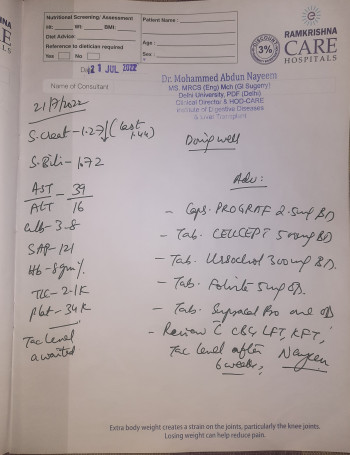 Nutritional Screening/ Assessment
Ht: Wt: BMI:
Diet Advice:
Reference to dietician required
Yes No
Patient Name :
Age :
Sex :
DISCOUNT
3%
RAMKRISHNA
CARE
HOSPITALS
21 JUL 2022
Name of Consultant
Dr. Mohammed Abdun Nayeem
MS, MRCS (Eng) Mch (GI Sugery)
Delhi University, PDF (Delhi)
Clinical Director & HOD-CARE
Institute of Digestive Diseases
& Liver Transplant
21/7/2022
S. Creat - 1.27↓ (last 1.44)
Doing well
S. Bili - 1.72
AST - 39
ALT 16
Adv :
Alb - 3.8
- Cap. PROGRAF 2.5mg BD
SAP - 121
- Tab. CELLCEPT 500mg BD
Hb - 8gm%
- Tab. Ursochol 300mg BD.
TLC - 2.1K
- Tab. Folvite 5mg OD.
Plat - 34K
- Tab. Pro one OD
Tac level
awaited
- Review C CBC, LFT, KFT,
Tac level after
6 weeks,
Nayeem
Extra body weight creates a strain on the joints, particularly the knee joints.
Losing weight can help reduce pain.